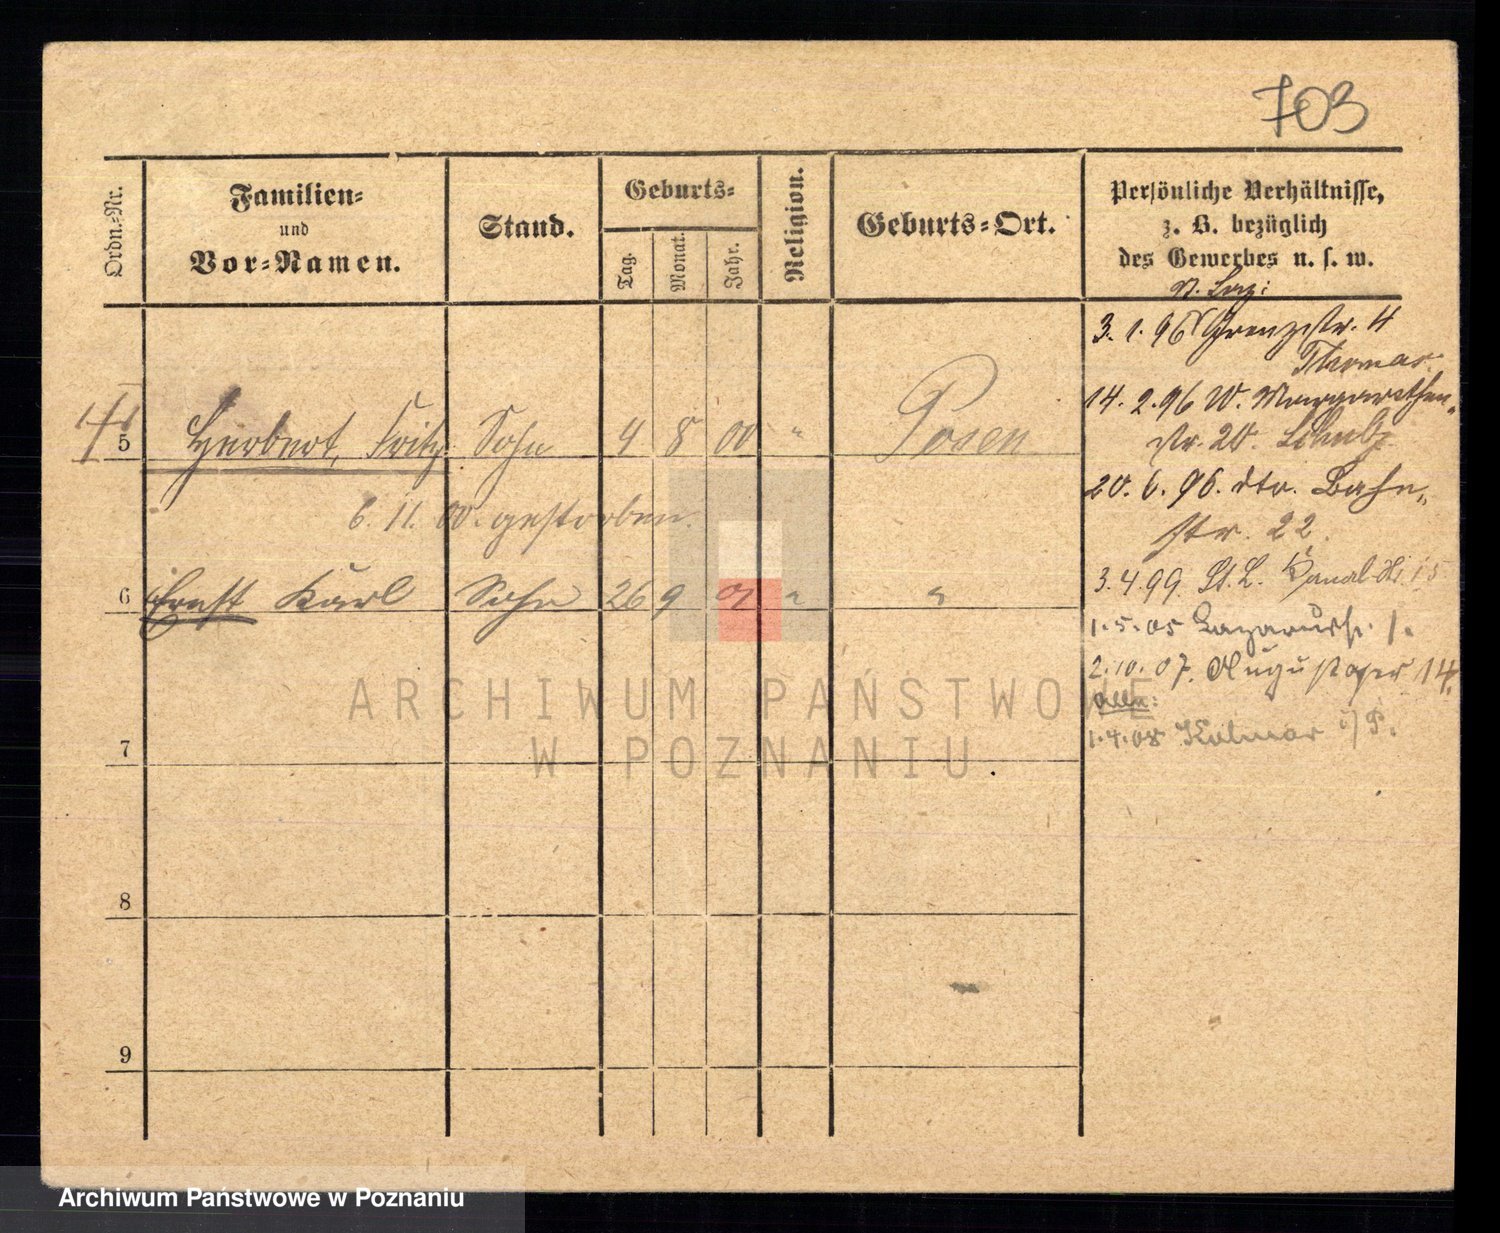 703
Ordn.-Nr.
Familien-
und
Vor-Namen.
Stand.
Geburts-
Tag.
Monat.
Jahr.
Religion.
Geburts-Ort.
Persönliche Verhältnisse,
z. B. bezüglich
des Gewerbes u. s. w.
St. Laz:
3. 1. 96 Grenzstr. 4
14. 2. 96 W. Margarethen-
str. 20.
5 Herbert, Fritz Sohn 4 8 00 " Posen
20. 6. 96. dto. Bahn-
str. 22.
6. 11. 00. gestorben.
3. 4. 99 St. L. Kanal 15
6 Ernst Karl Sohn 26 9 " "
1. 5. 05 Lazarusstr. 1.
2. 10. 07. Augustaper 14.
1. 4. 08 Kolmar i/P.
7
8
9
ARCHIWUM PAŃSTWOWE
W POZNANIU
Archiwum Państwowe w Poznaniu